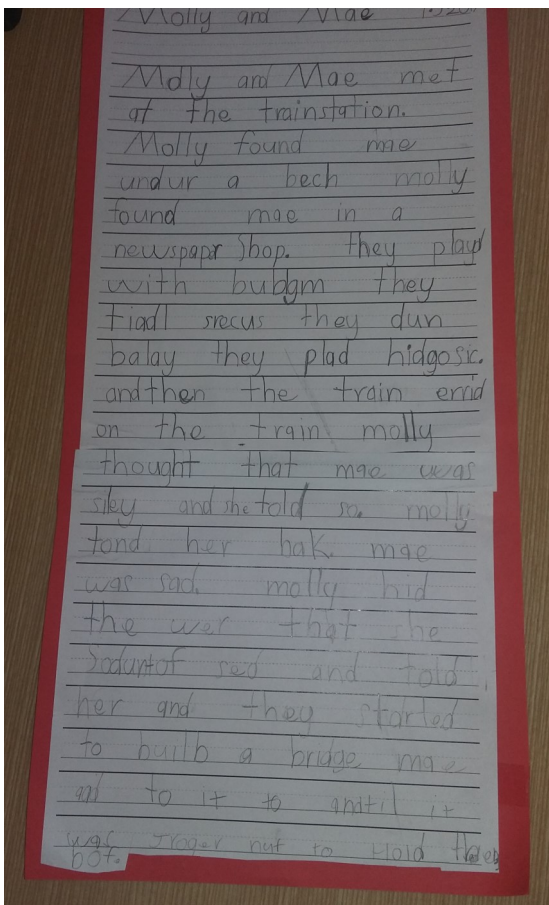 Molly and Mae
Molly and Mae met
at the trainstation.
Molly found mae
undur a bech molly
found mae in a
newspapr Shop. they playd
with bubgm they
tiadl srecus they dun
balay they plad hidgosic.
andthen the train errid
on the train molly
thought that mae was
siley and she told so. molly
tond her bak. mae
was sad. molly hid
the wer that she
Soduntof sed and told
her and they started
to builb a bridge mae
ad to it to antil it
was sroger nuf to Hold them
bot.